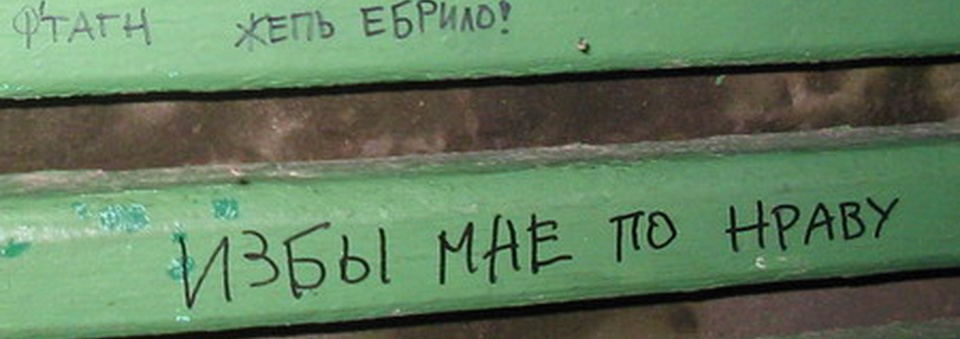 Ф'ТАГН ЖЕПЬ ЕБРИЛО!
ИЗБЫ МНЕ ПО НРАВУ